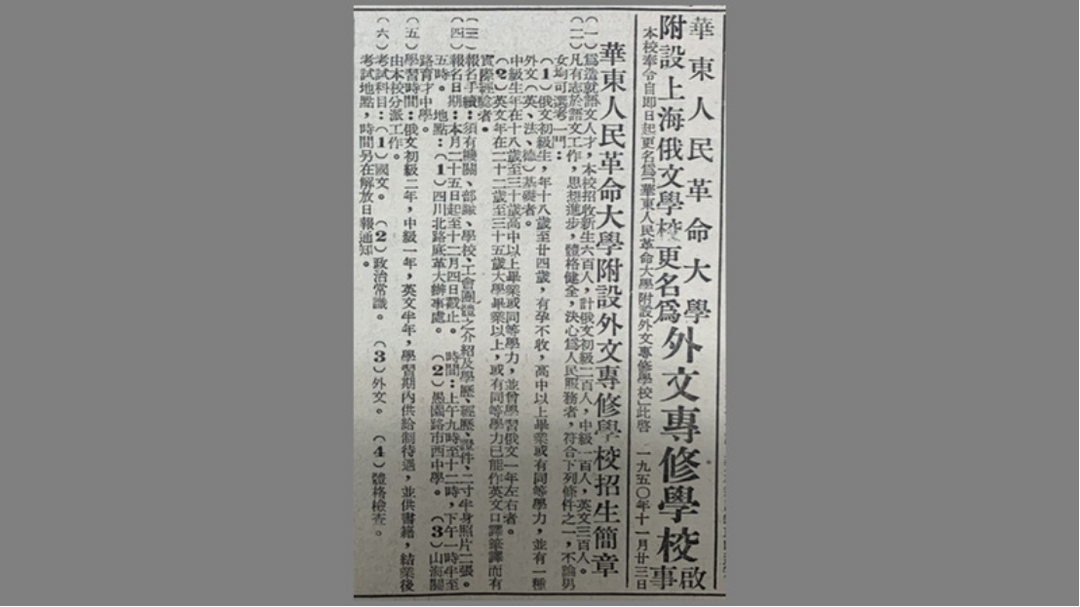 華東人民革命大學
附設上海俄文學校更名爲外文專修學校啟事
本校奉令自即日起更名爲「華東人民革命大學附設外文專修學校」此啓　一九五〇年十一月廿三日
華東人民革命大學附設外文專修學校招生簡章
(一)爲造就語文人才，本校招收新生六百人，計俄文初級二百人，中級一百人，英文三百人。
(二)凡有志於語文工作，思想進步，體格健全，決心爲人民服務者，符合下列條件之一，不論男
女均可選考一門：
(1)俄文初級生，年十八歲至廿四歲，有孕不收，高中以上畢業或有同等學力，並有一種
外文(英、法、德)基礎者。
中級生年在十八歲至三十歲高中以上畢業或同等學力，並曾學習俄文一年左右者。
(2)英文年在二十二歲至三十五歲大學畢業以上，或有同等學力已能作英文口譯筆譯而有
實際經驗者。
(三)報名手續：須有機關、部隊、學校、工會團體之介紹及學歷、經歷、證件、二寸半身照片二張。
(四)報名日期：本月二十五日起至十二月四日截止。　時間：上午九時至十二時，下午一時半至
五時。　地點：(1)四川北路底革大辦事處。　(2)愚園路市西中學。　(3)山海關
路育才中學。
(五)學習時間：俄文初級二年，中級一年，英文半年，學習期內供給制待遇，並供書籍，結業後
由本校分派工作。
(六)考試科目：(1)國文。　(2)政治常識。　(3)外文。　(4)體格檢查。
考試地點，時間另在解放日報通知。